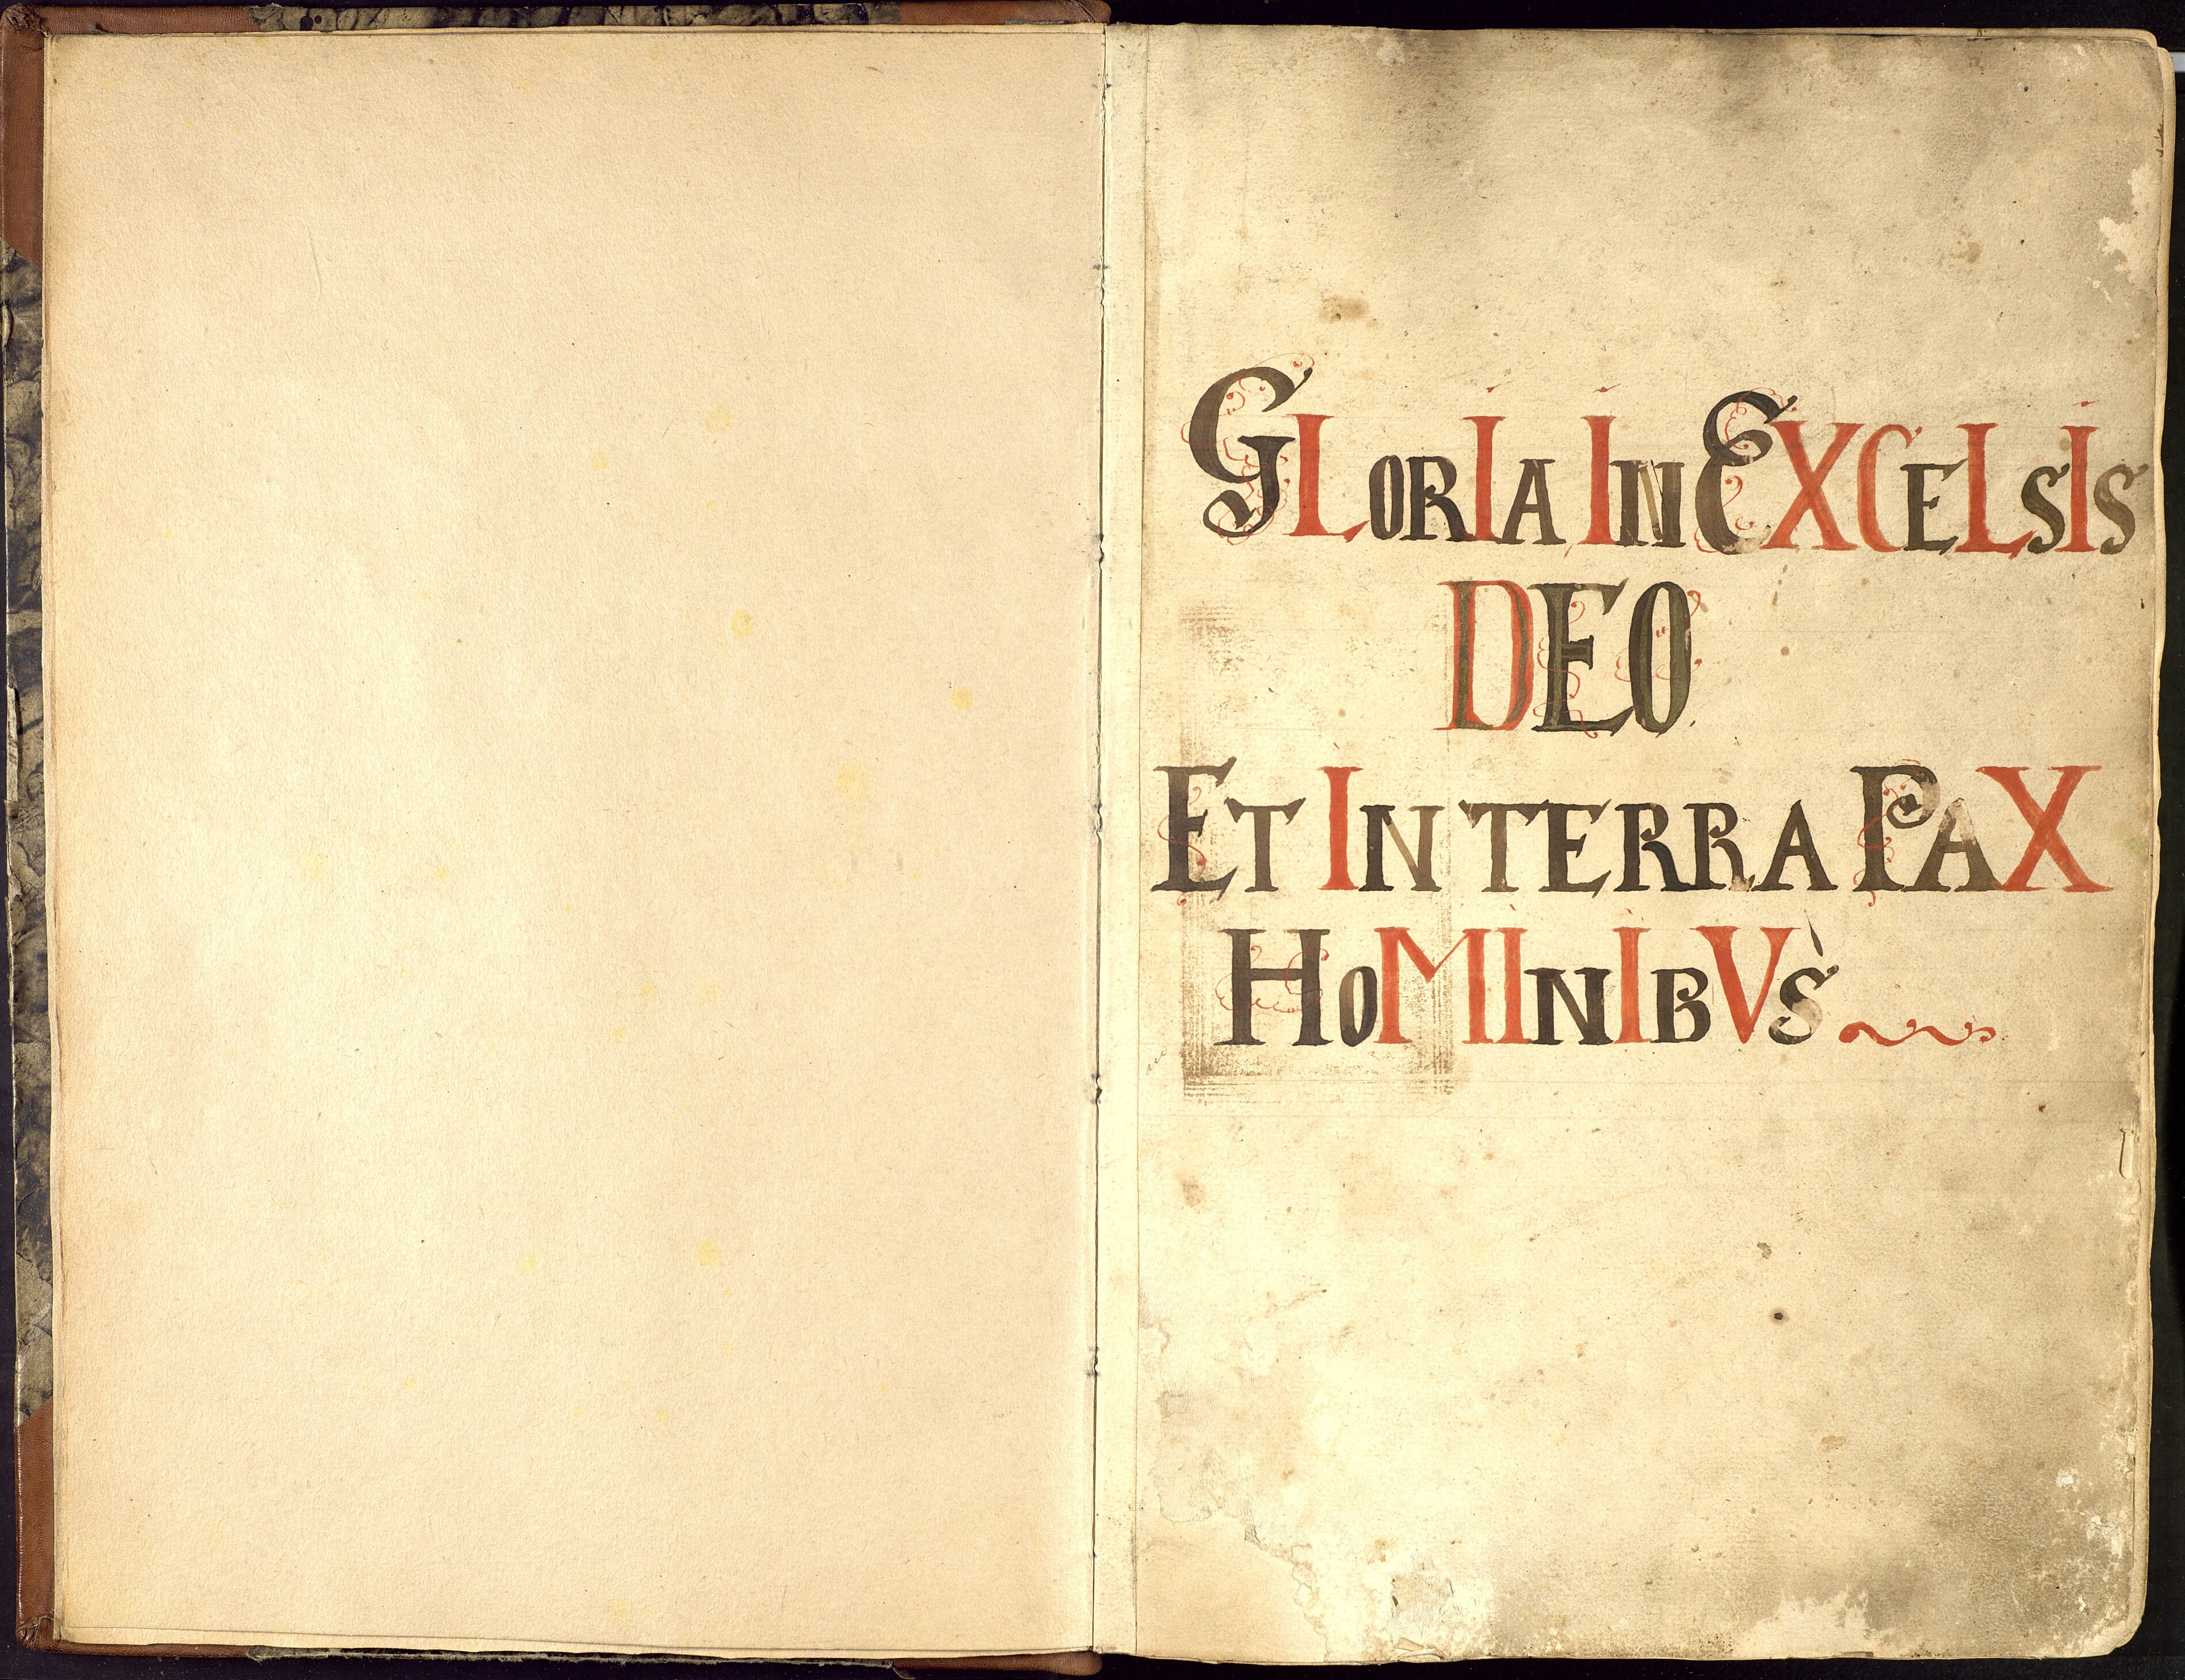 GLORIA IN EXCELSIS
DEO
ET IN TERRA PAX
HOMINIBVS